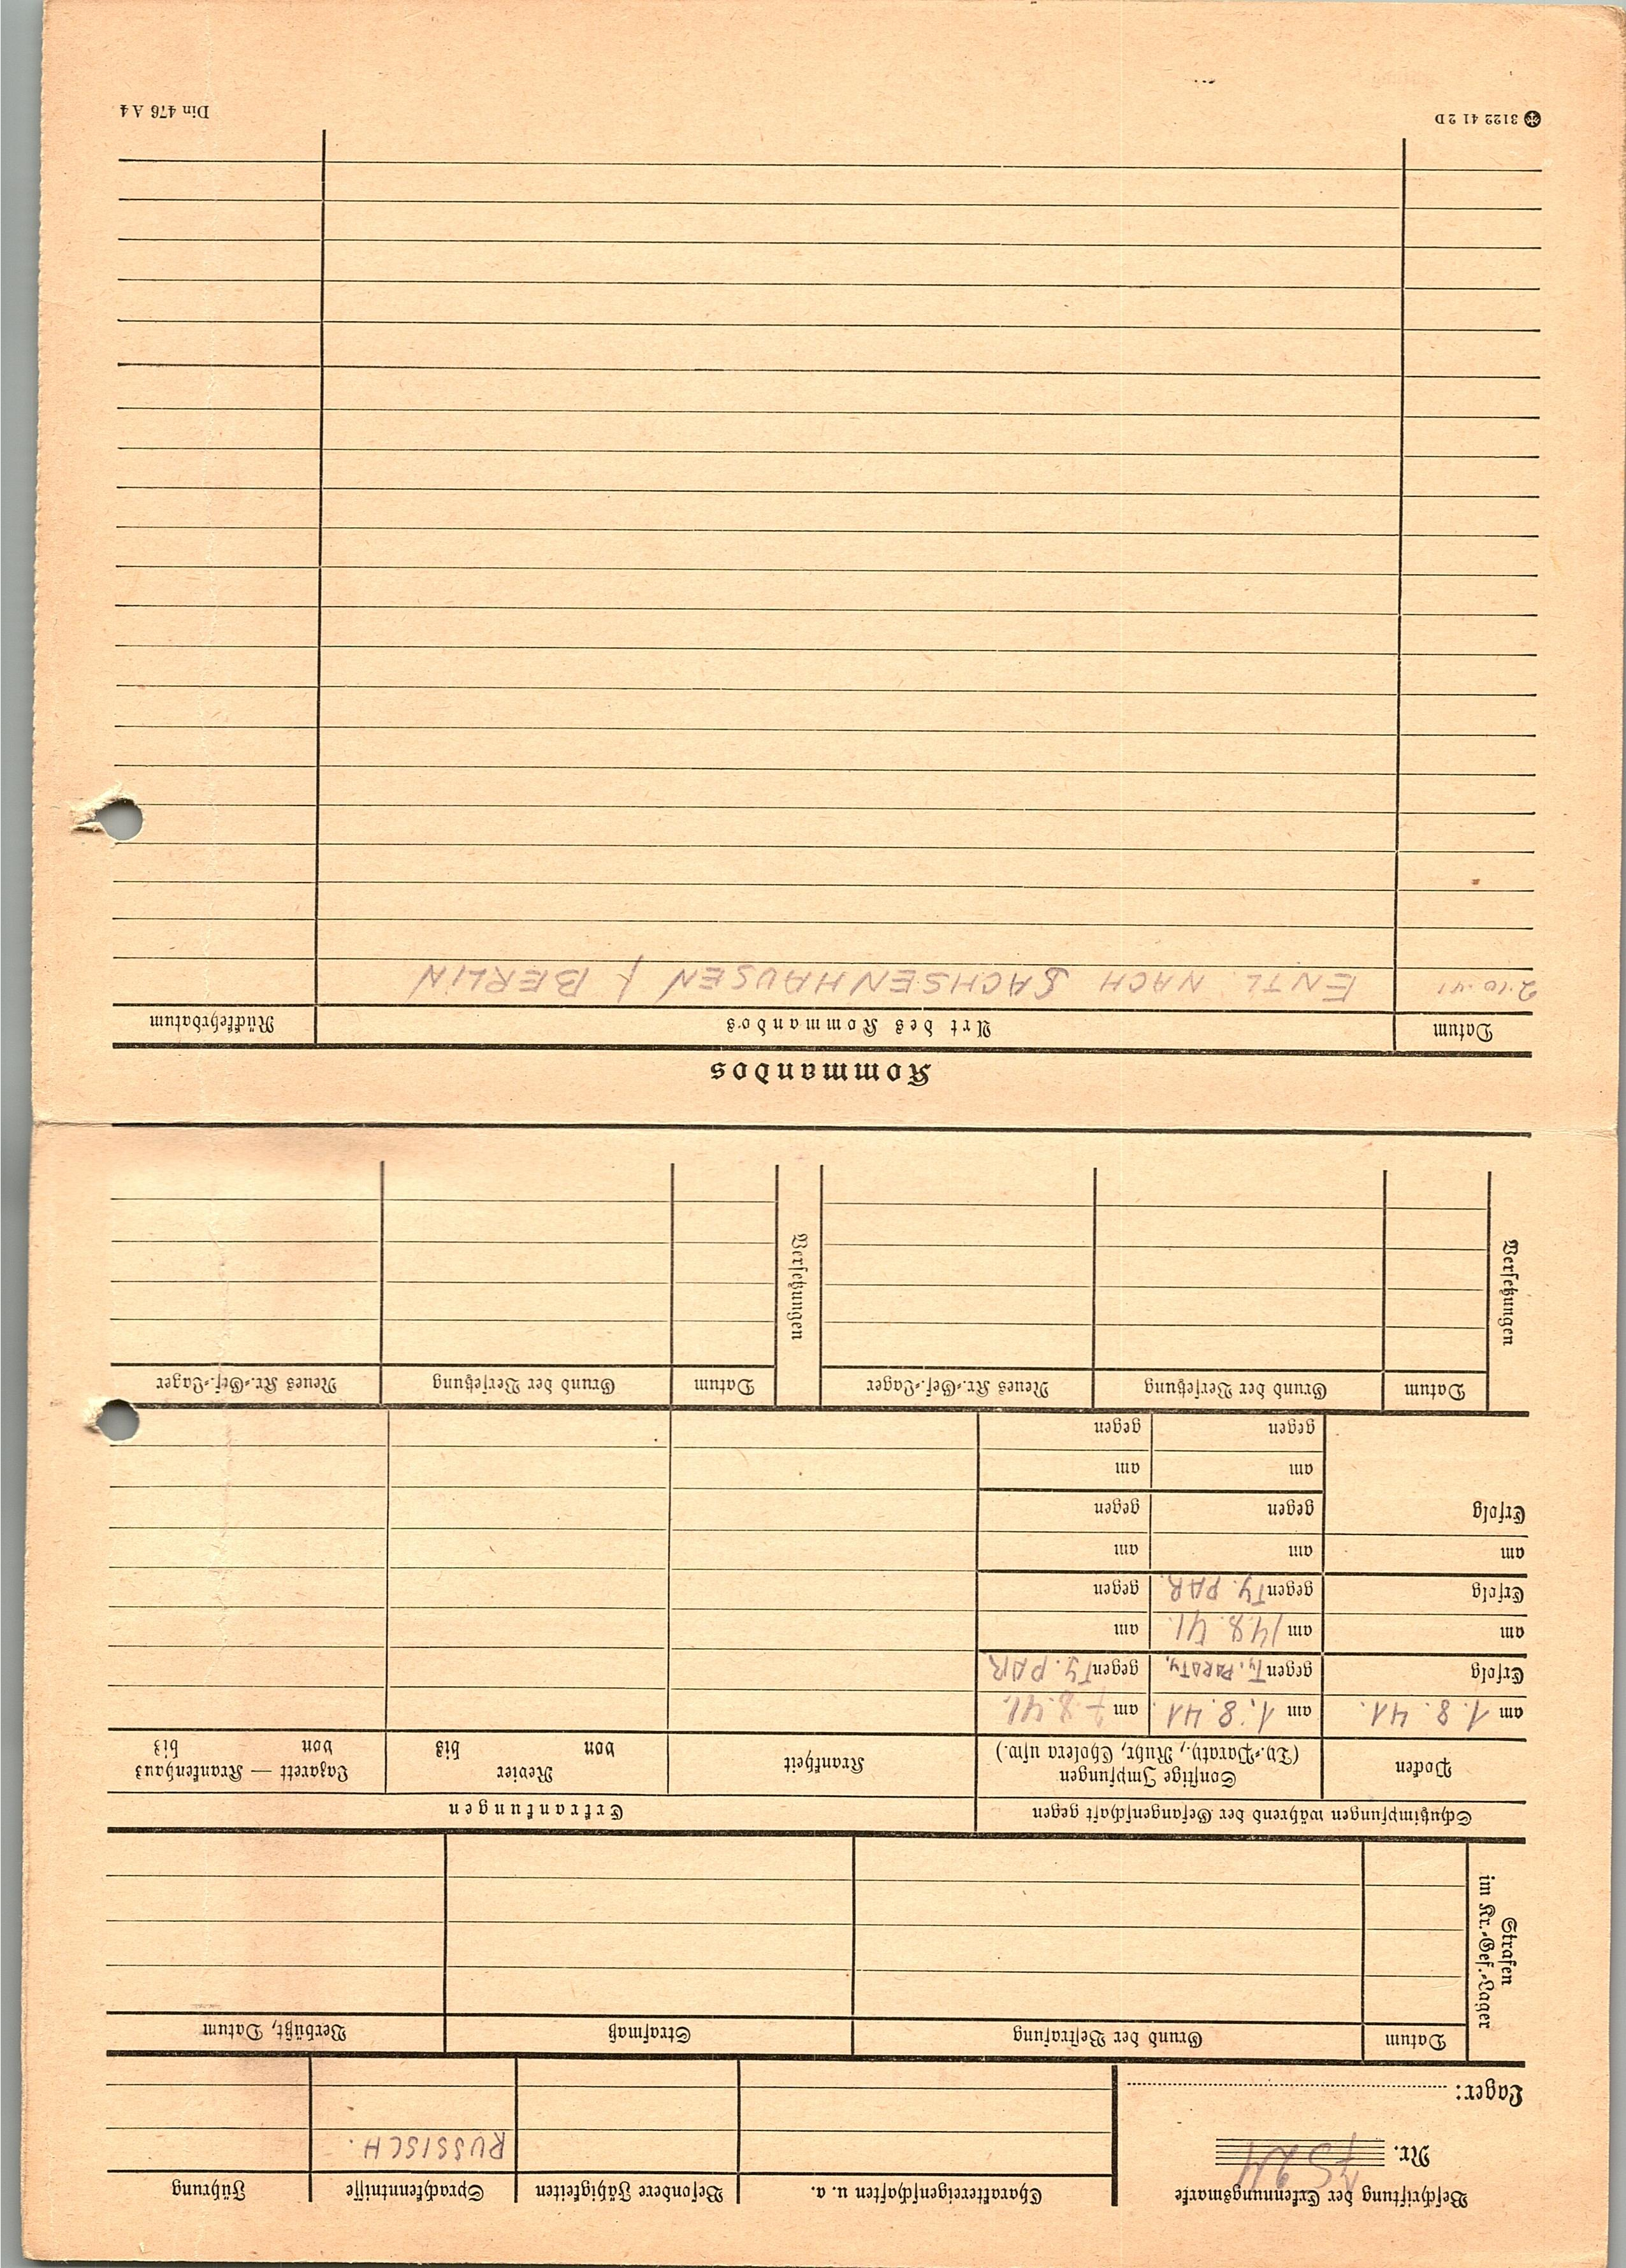 Beschriftung der Erkennungsmarke
Nr.
Lager:
Charaktereigenschaften u. a.
Besondere Fähigkeiten
Sprachkenntnisse
Führung
RUSSISCH.
Strafen
im Kr.-Gef.-Lager
Datum
Grund der Bestrafung
Strafmaß
Verbüßt, Datum
Schutzimpfungen während der Gefangenschaft gegen
Erkrankungen
Pocken
Sonstige Impfungen
(Ty.-Paraty., Ruhr, Cholera usw.)
Krankheit
Revier
von bis
Lazarett — Krankenhaus
von bis
am 1. 8. 41.
am 1. 8. 41.
am 7. 8. 41.
Erfolg
gegen Ty. PARATy.
gegen TY. PAR
am
am 14.8. 41.
am
Erfolg
gegen TY. PAR.
gegen
am
am
am
Erfolg
gegen
gegen
am
am
gegen
gegen
Versetzungen
Datum
Grund der Versetzung
Neues Kr.-Gef.-Lager
Versetzungen
Datum
Grund der Versetzung
Neues Kr.-Gef.-Lager
Kommandos
Datum
Art des Kommandos
Rückkehrdatum
2.10.41 ENTL. NACH SACHSENHAUSEN / BERLIN
3122 41 2 D
Din 476 A 4